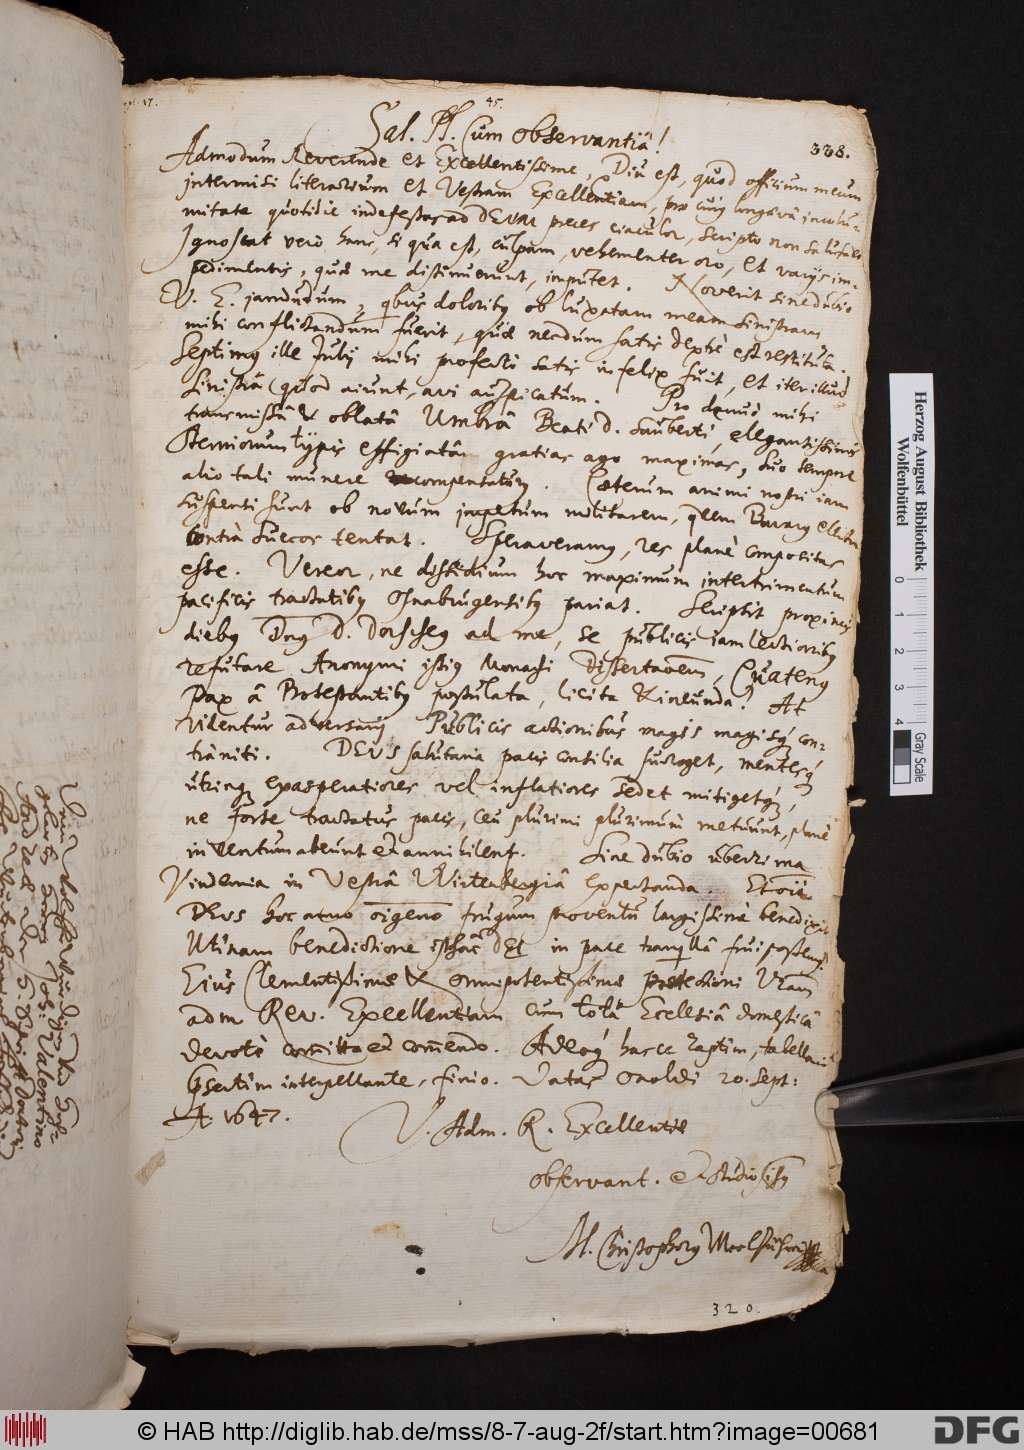 45.
338.
Sal. Pl. Cum observantiâ!
Admodum Reverende et Excellentissime, Diu est, quod officium meum
intermisi literarium et Vestram Excellentiam, pro cuius longaevâ incolu-
mitate quotidie indefessas ad DEUM preces eiaculor, scripto non salutavi.
Ignoscat verò hanc, si qua est, culpam, vehementer oro, et varijs im-
pedimentis, quae me distinuerunt, imputet. Noverit sine dubio
V. E. jamdudum, qbus doloribus ob luxatam meam sinistram
mihi conflictandum fuerit, quae necdum satis dextrè est restituta.
Septimus ille Julij mihi profectò satis infelix fuit, et iter illud
sinistrâ (quod aiunt, avi auspicatum. Pro denuò mihi
transmissâ & oblatâ Umbrâ Beati D. Sauberti, elegantissimis
typis effigiatâ gratias ago maximas, suo tempore
alio tali munere recompensaturus. Caeterum animi nostri iam
suspensi sunt ob novum impetum militarem, quem Bavarus elector
contrà Suecos tentat. Speraveramus, res planè compositas
esse. Vereor, ne dissidium hoc maximum intertrimentum
pacificis tractatibus Osnabrugensibus pariat. Scripsit proximis
diebus Dnus D. Dorscheus ad me, se publicis iam lectionibus
refutare Anonymi istius Monachi Dissertaõem, Quatenus
Pax â Protestantibus postulata, licita &iurunda? At
videntur adversarij Publicis actionibus magis magisq con-
trâniti. DEUS salutaria pacis consilia suggerat, mentesq
utrinq exasperatiores vel inflatiores sedet mitigetq,
ne forte tractatus pacis, ceu plurimi plurimum metuunt, planè
in ventum abeunt et annihilent. Sine dubio uberrima
Vindemia in Vestrâ Wirtenbergiâ expectanda.
DEUS hoc anno frugum proventu largissimè benedixit
Utinam benedictione isthac DEI in pace tranquillâ frui possemus.
Eius Clementissimae & omnipotentissimae protectioni Vram
adm Rev. Excellentiam cum totâ Ecclesiâ domesticâ
devotè committo et commendo. Adeoq haec raptim, tabellario
psertim interpellante, finio. Datae Onoldi 20. Sept:
A. 1647.
V. Adm. R. Excellentiae
observant. et studiosissus
M. Christophorus
320.
Herzog August Bibliothek
Wolfenbüttel
0 1 2 3 4
Gray Scale
© HAB http://diglib.hab.de/mss/8-7-aug-2f/start.htm?image=00681
DFG